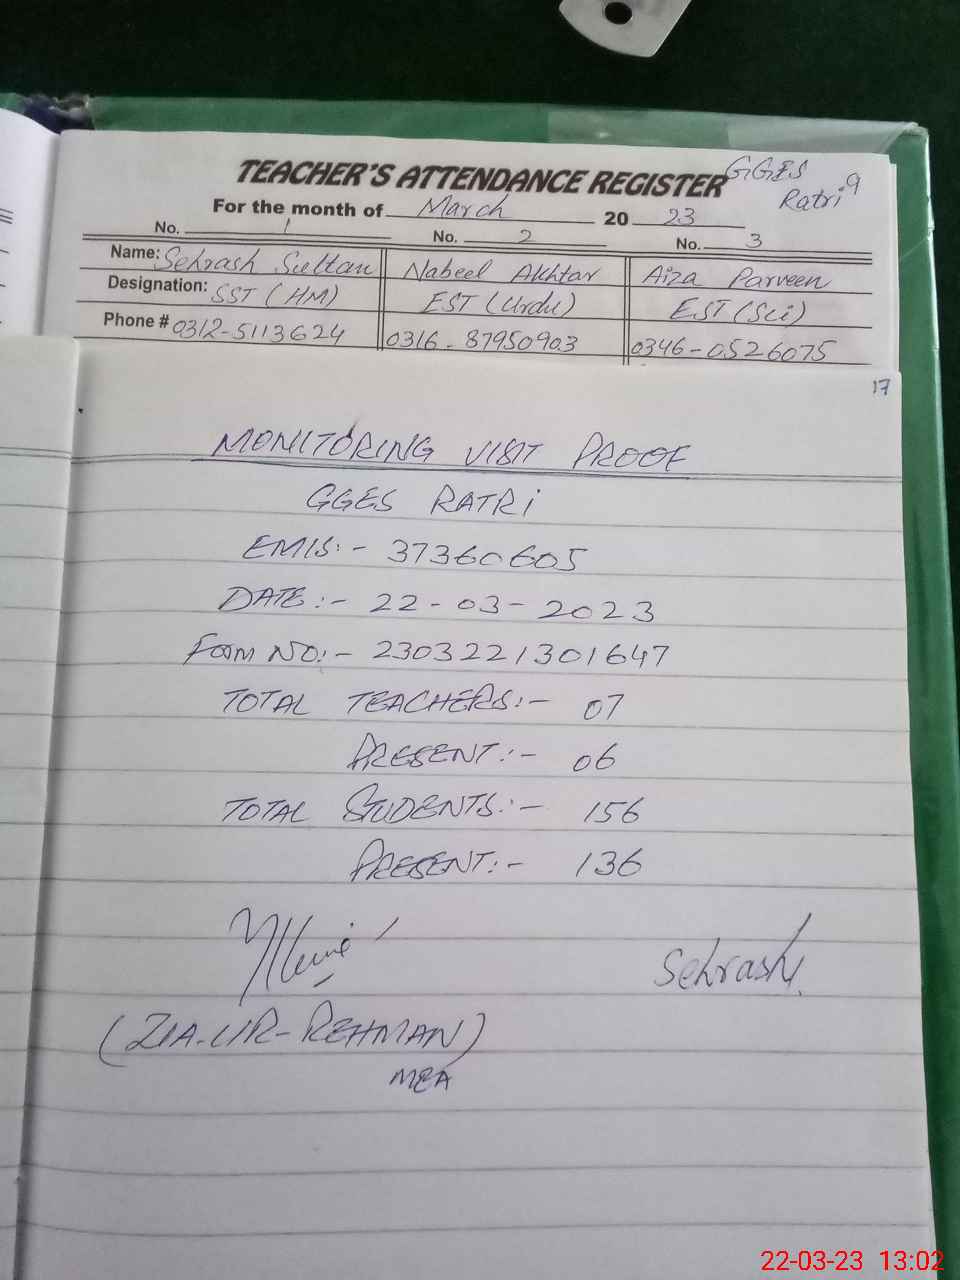 TEACHER'S ATTENDANCE REGISTER GGES
Ratri 9
For the month of March 20 23
No. 1 No. 2 No. 3
Name: Sehrash Sultan Nabeel Akhtar Aiza Parveen
Designation: SST (HM) EST (Urdu) EST (Sci)
Phone # 0312-5113624 0316-87950903 0346-0526075
17
MONITORING VISIT PROOF
GGES RATRi
EMIS:- 37360605
DATE:- 22-03-2023
Form NO:- 2303221301647
TOTAL TEACHERS:- 07
PRESENT:- 06
TOTAL STUDENTS:- 156
PRESENT:- 136
Sehrash
(ZIA-UR-REHMAN)
MEA
22-03-23 13:02